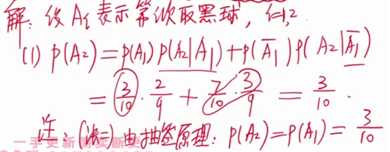 解: 设 Aᵢ 表示第i次取黑球, i=1,2
(1) P(A₂)=P(A₁)P(A₂|A₁)+P(Ā₁)P(A₂|Ā₁)
= 3/10 · 2/9 + 7/10 · 3/9 = 3/10.
注: (法二) 由抽签原理: P(A₂)=P(A₁)= 3/10